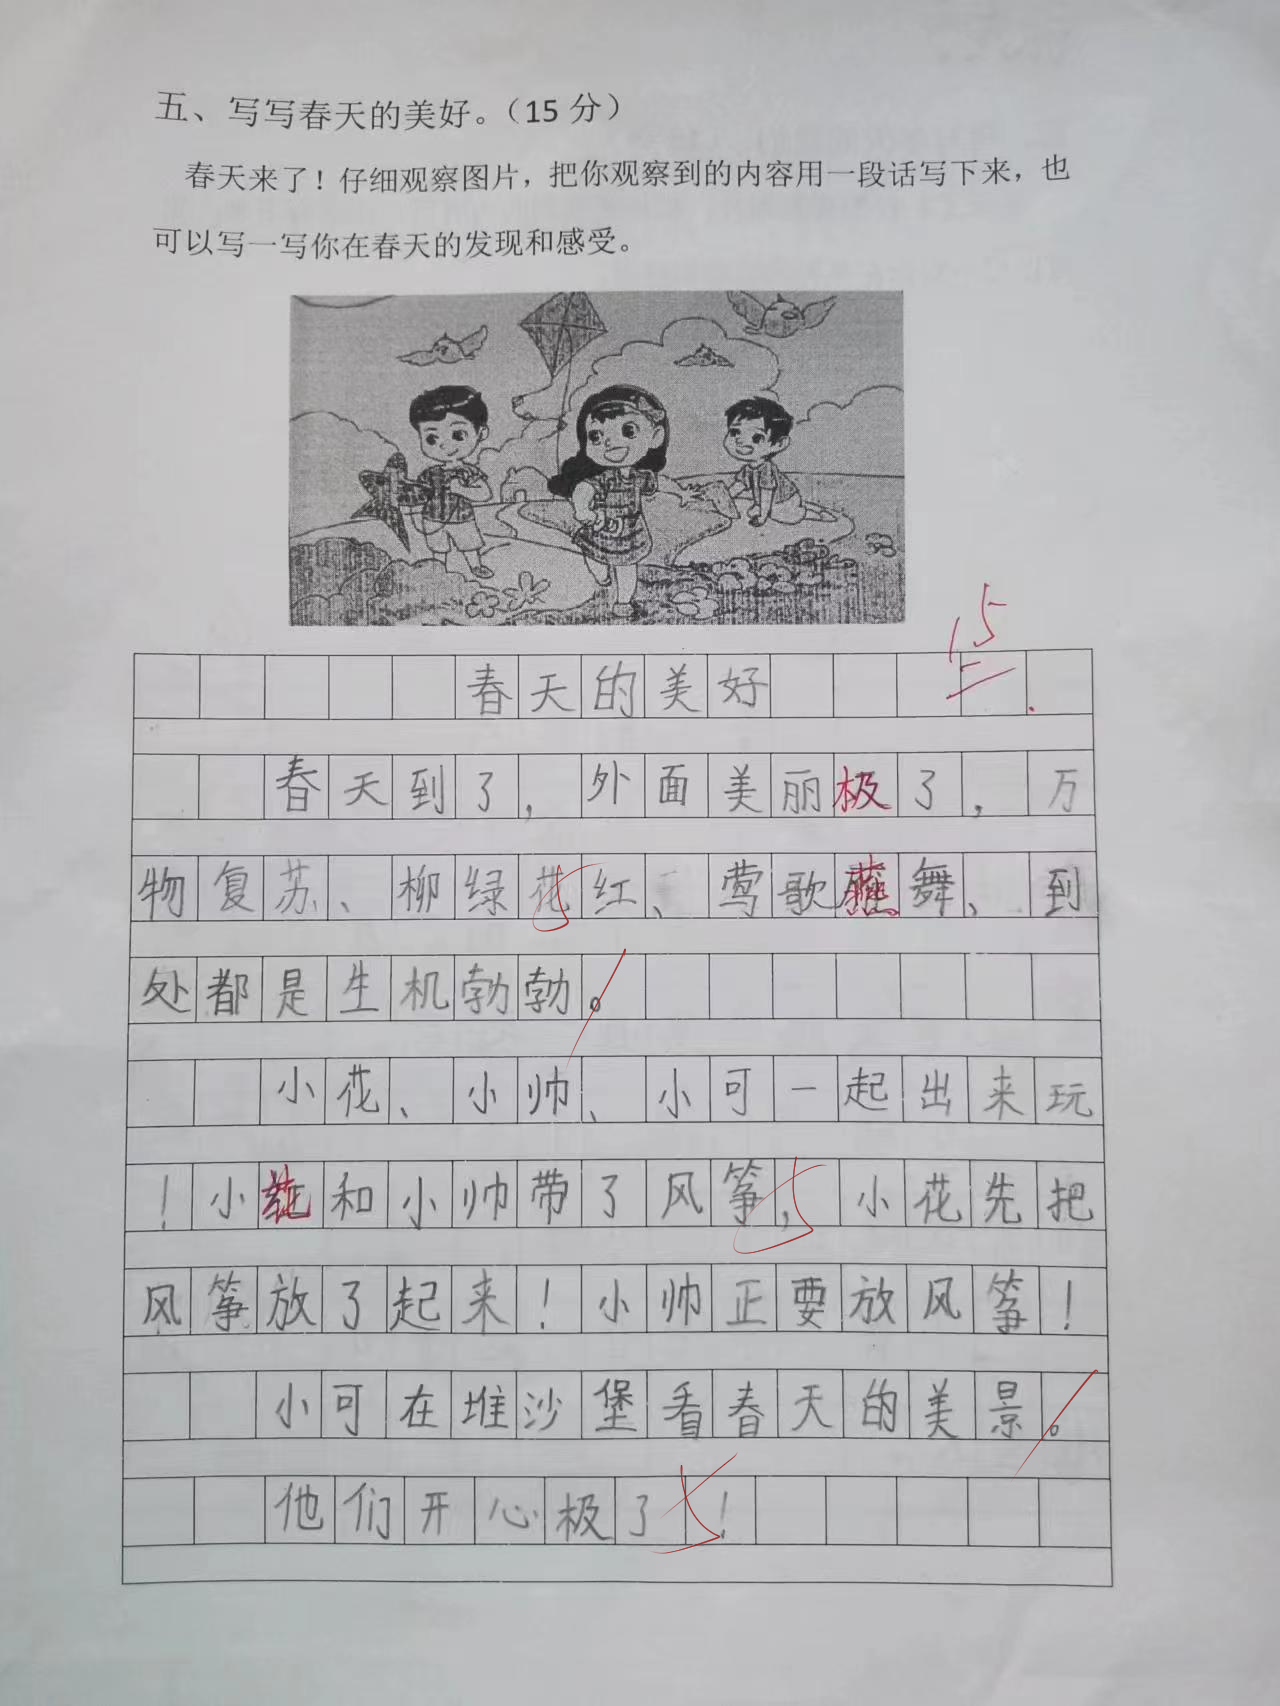 五、写写春天的美好。（15分）
春天来了！仔细观察图片，把你观察到的内容用一段话写下来，也
可以写一写你在春天的发现和感受。
15
春天的美好
春天到了，外面美丽极了，万
物复苏、柳绿花红、莺歌燕舞、到
处都是生机勃勃。
小花、小帅、小可一起出来玩
！小花和小帅带了风筝，小花先把
风筝放了起来！小帅正要放风筝！
小可在堆沙堡看春天的美景。
他们开心极了！